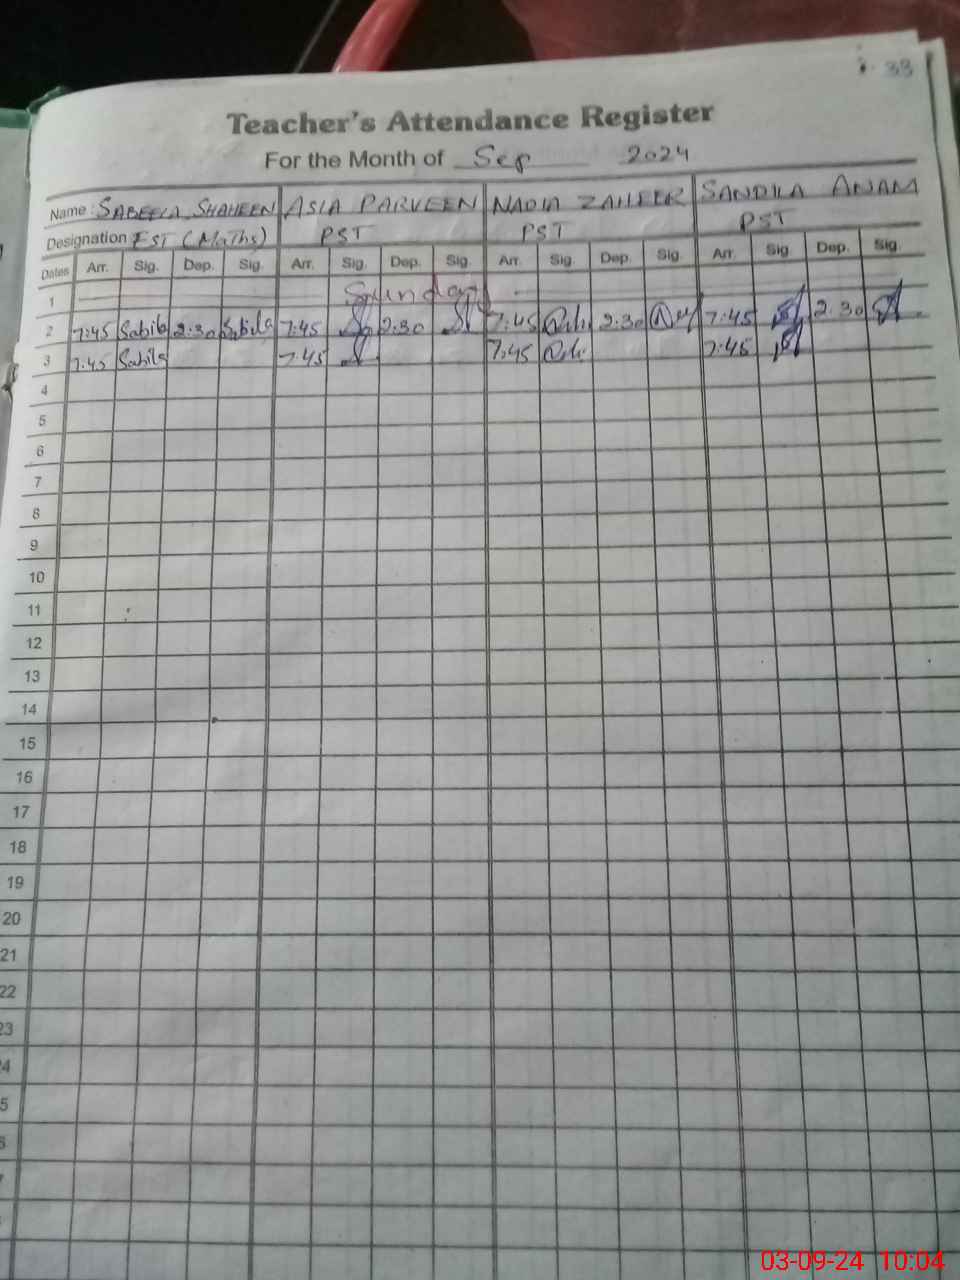 33
Teacher's Attendance Register
For the Month of Sep 2024
Name: SABEELA SHAHEEN ASIA PARVEEN NADIA ZAHEER SANDILA ANAM
Designation EST (Maths) PST PST PST
Dates Arr. Sig. Dep. Sig. Arr. Sig. Dep. Sig. Arr. Sig. Dep. Sig. Arr. Sig. Dep. Sig.
1 Sunday
2 7:45 Sabila 2:30 Sabila 7:45 2:30 7:45 2:30 7:45 2:30
3 7:45 Sabila 7:45 7:45 7:45
4
5
6
7
8
9
10
11
12
13
14
15
16
17
18
19
20
21
22
23
4
5
03-09-24 10:04